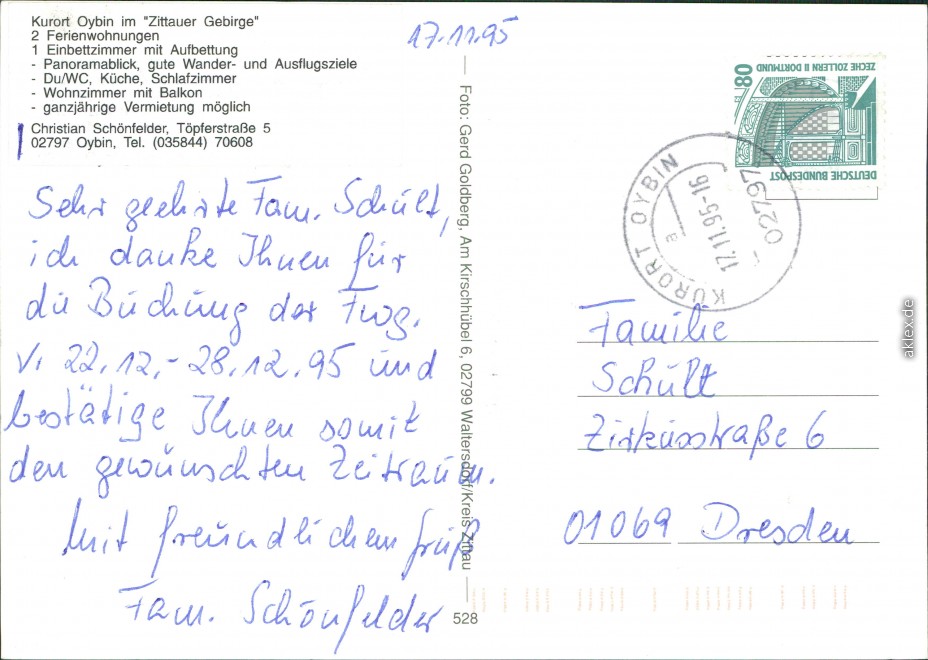 Kurort Oybin im "Zittauer Gebirge"
2 Ferienwohnungen
1 Einbettzimmer mit Aufbettung
- Panoramablick, gute Wander- und Ausflugsziele
- Du/WC, Küche, Schlafzimmer
- Wohnzimmer mit Balkon
- ganzjährige Vermietung möglich
Christian Schönfelder, Töpferstraße 5
02797 Oybin, Tel. (035844) 70608
17.11.95
Sehr geehrte Fam. Schült,
ich danke Ihnen für
die Buchung der Fwg.
v. 22.12.- 28.12.95 und
bestätige Ihnen somit
den gewünschten Zeitraum.
Mit freundlichem Gruß
Fam. Schönfelder
Foto: Gerd Goldberg, Am Kirschhübel 6, 02799 Waltersdorf/Kreis Zittau
528
80
ZECHE ZOLLERN II DORTMUND
DEUTSCHE BUNDESPOST
KURORT OYBIN
02797
17.11.95-16
Familie
Schült
Zirkusstraße 6
01069 Dresden
aklex.de